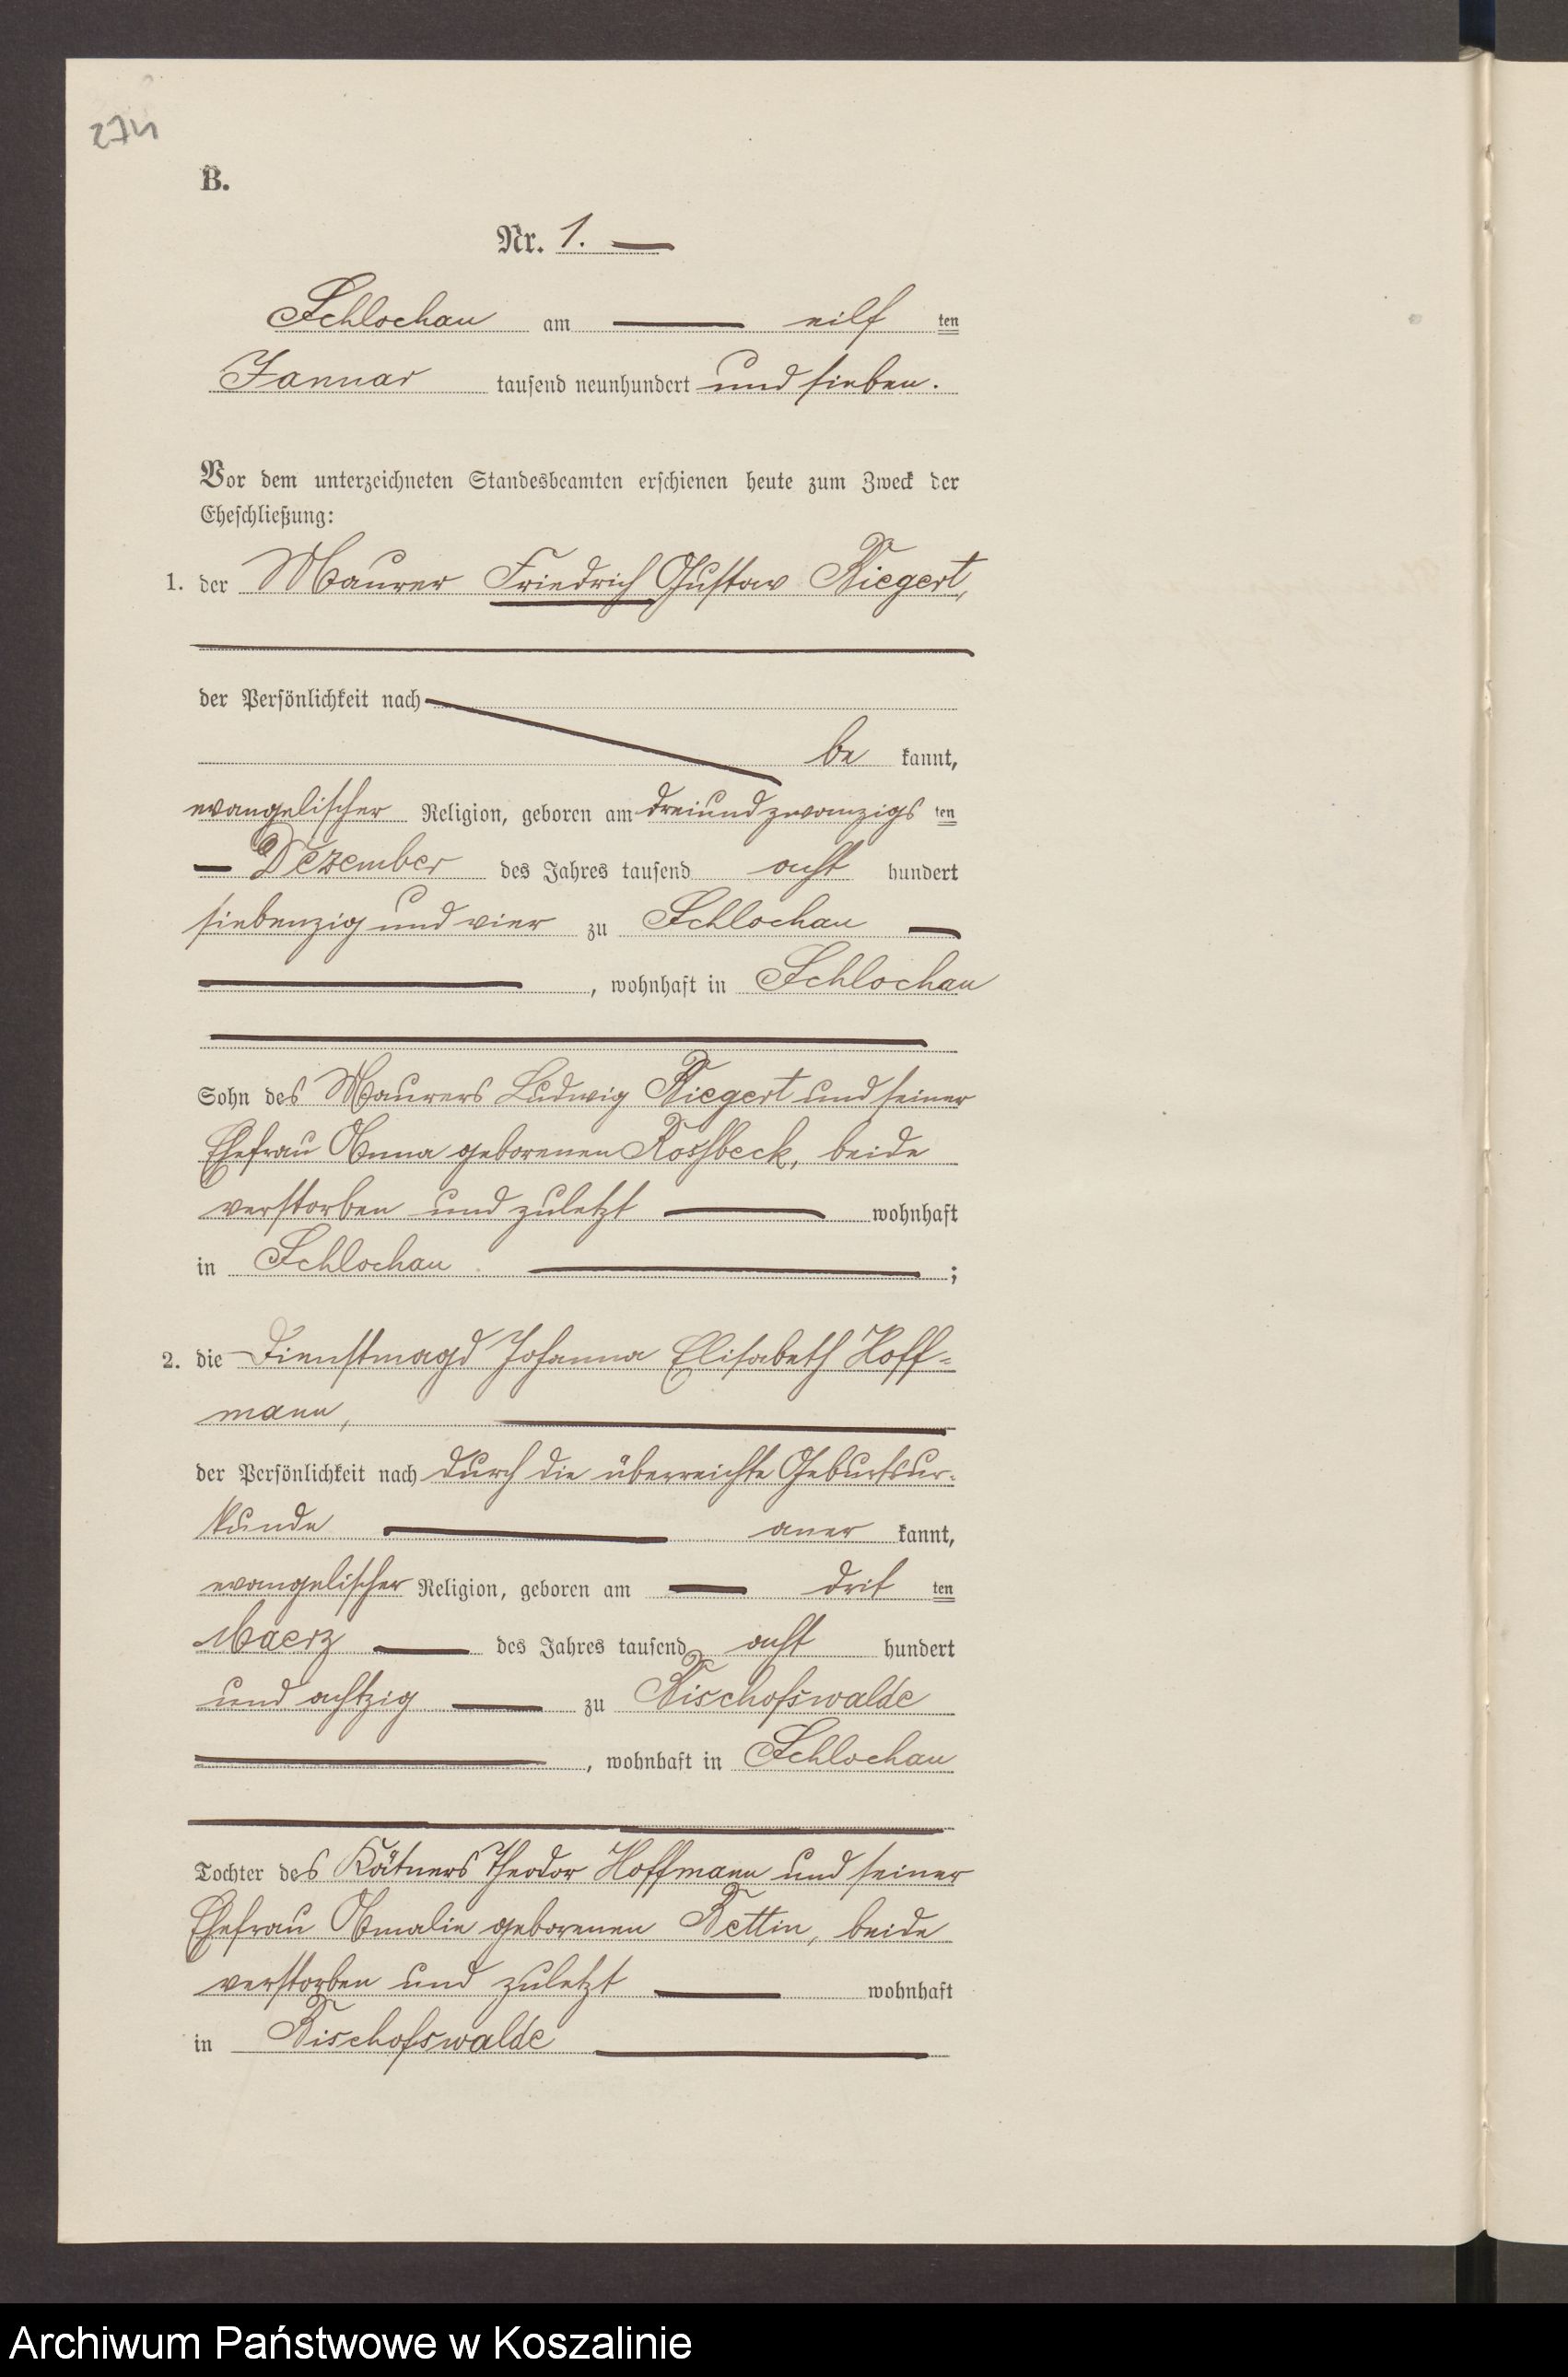 274
B.
Nr. 1.
Schlochau am eilf ten
Januar tausend neunhundert und sieben.
Vor dem unterzeichneten Standesbeamten erschienen heute zum Zweck der
Eheschließung:
1. der Maurer Friedrich Gustav Biegert,
der Persönlichkeit nach
be kannt,
evangelischer Religion, geboren am dreiundzwanzigs ten
Dezember des Jahres tausend acht hundert
siebenzig und vier zu Schlochau
, wohnhaft in Schlochau
Sohn des Maurers Ludwig Biegert und seiner
Ehefrau Anna geborenen beide
verstorben und zuletzt wohnhaft
in Schlochau ;
2. die Dienstmagd Johanna Elisabeth Hoff=
mann,
der Persönlichkeit nach durch die überreichte Geburtsur=
kunde aner kannt,
evangelischer Religion, geboren am drit ten
Maerz des Jahres tausend acht hundert
und achtzig zu Bischofswalde
, wohnhaft in Schlochau
Tochter des Kätners Theodor Hoffmann und seiner
Ehefrau Amalie geborenen Bettin, beide
verstorben und zuletzt wohnhaft
in Bischofswalde
Archiwum Państwowe w Koszalinie